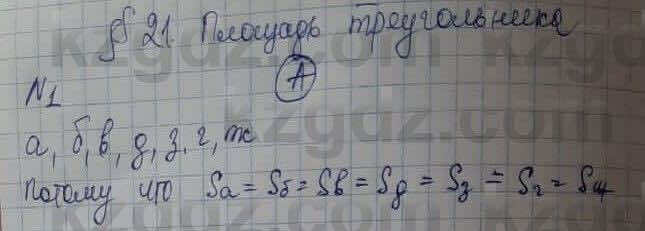 § 21. Площадь треугольника
А
№1
а, б, в, д, з, г, ж
Потому что Sа = Sб = Sв = Sд = Sз = Sг = Sж
kzgdz.com